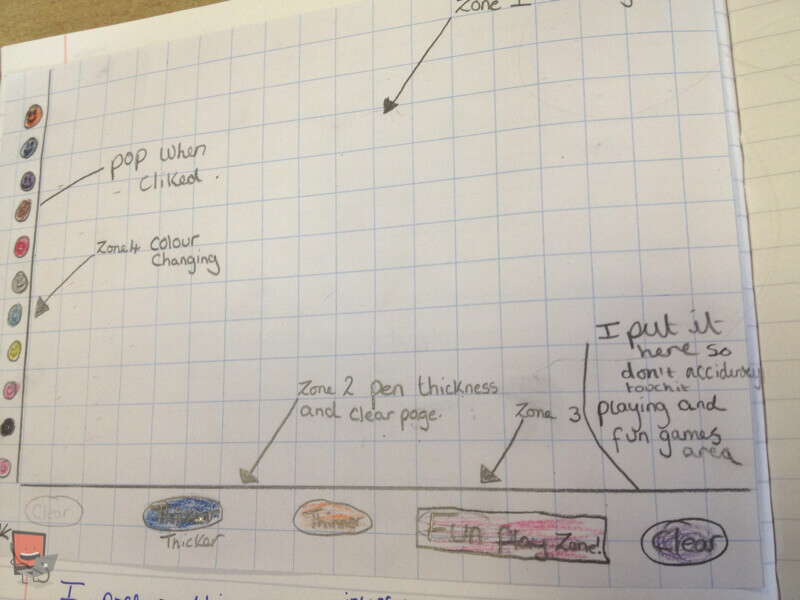 Zone 1
pop when
cliked.
Zone 4 colour
changing
I put it
here so
don't accidently
touch it
Zone 2 pen thickness
and clear page.
Zone 3
playing and
fun games
area
Clear
Thicker
Thinner
Fun Play Zone!
Clear
I